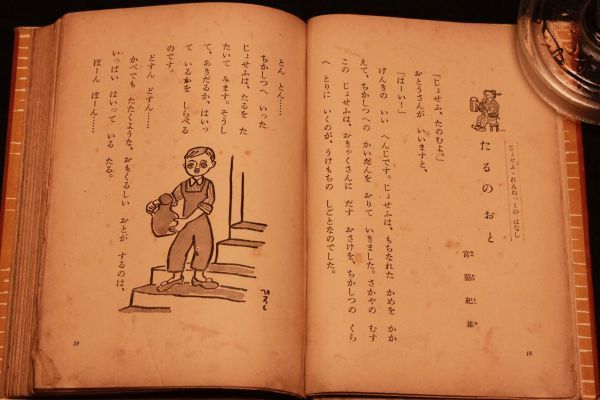 じょせふ・れんねっくの はなし
たるのおと
宮脇紀雄
「じょせふ、たのむよ。」
おとうさんが いいますと、
「はーい！」
げんきの いい へんじです。じょせふは、もちなれた かめを かか
えて、ちかしつへの かいだんを おりて いきました。さかやの むす
この じょせふは、おきゃくさんに だす おさけを、ちかしつの くら
へ とりに いくのが、うけもちの しごとなのでした。
18
とん とん……
ちかしつへ いった
じょせふは、たるを た
たいて みます。そうし
て、あきだるか、はいっ
て いるかを しらべる
のです。
どすん どすん……
かべでも たたくような、おもくるしい おとが するのは、
いっぱい はいって いる たる。
ぽーん ぽーん……
19